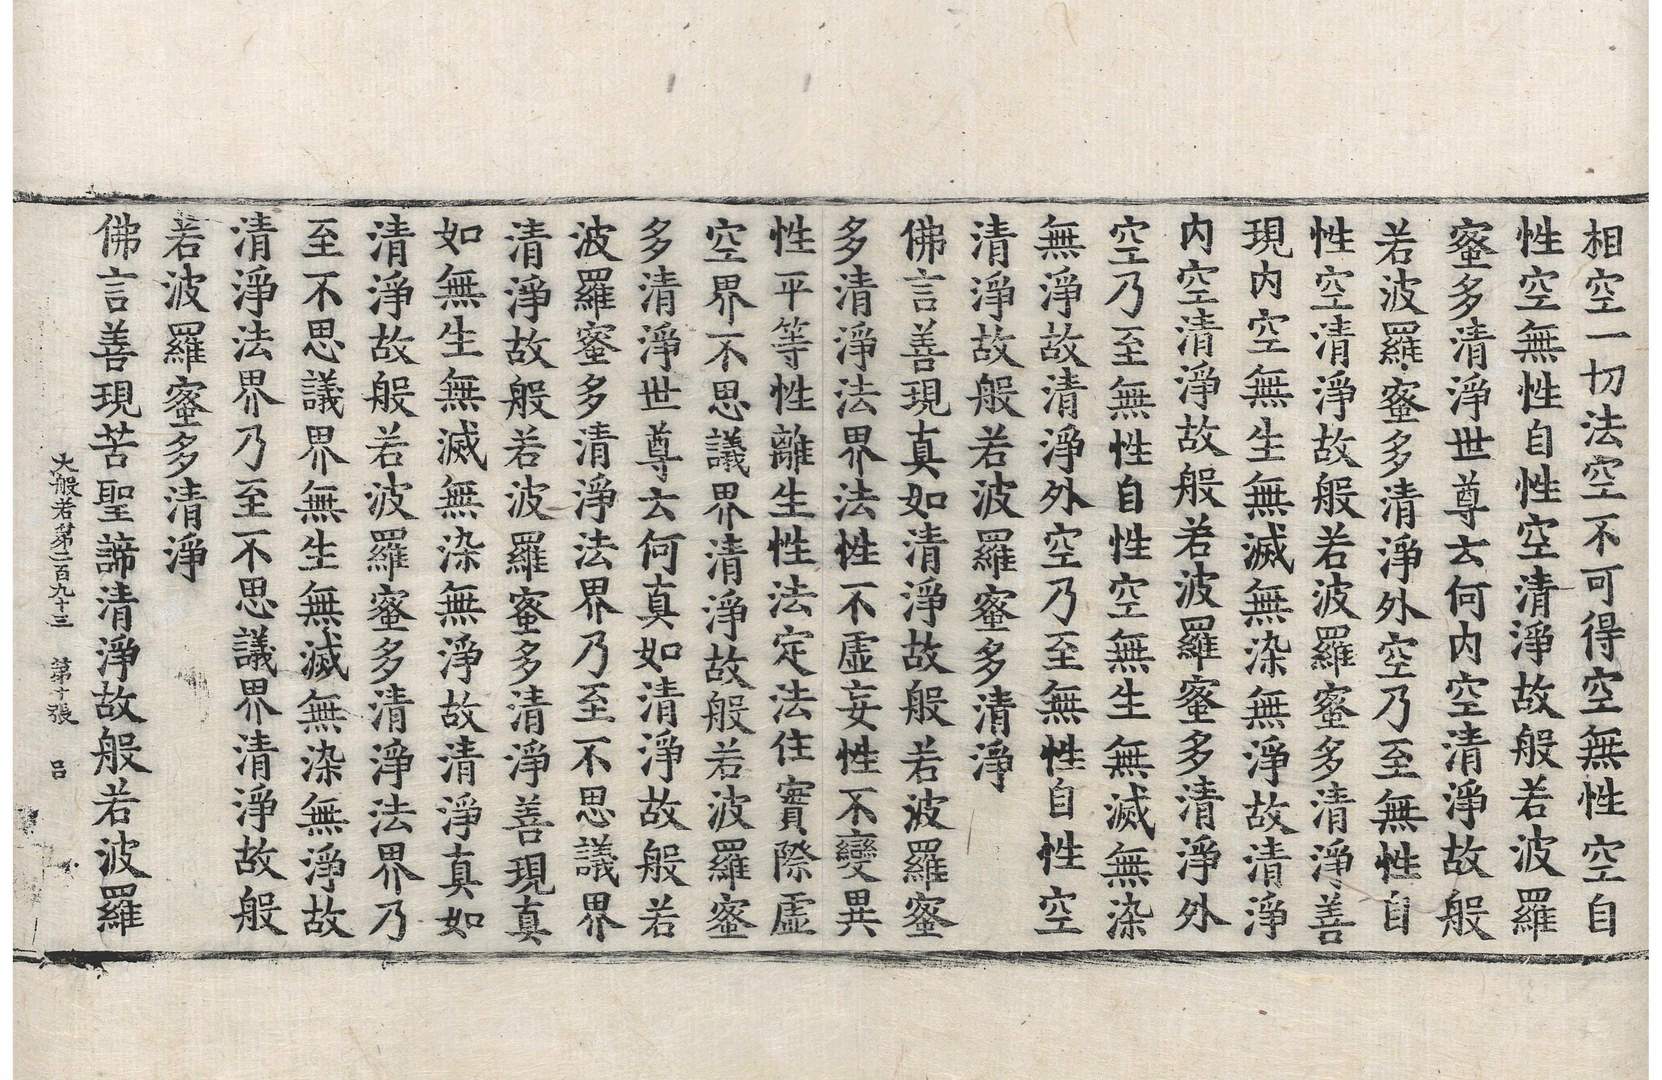 相空一切法空不可得空無性空自
性空無性自性空清淨故般若波羅
蜜多清淨世尊云何内空清淨故般
若波羅蜜多清淨外空乃至無性自
性空清淨故般若波羅蜜多清淨善
現内空無生無滅無染無淨故清淨
内空清淨故般若波羅蜜多清淨外
空乃至無性自性空無生無滅無染
無淨故清淨外空乃至無性自性空
清淨故般若波羅蜜多清淨
佛言善現真如清淨故般若波羅蜜
多清淨法界法性不虛妄性不變異
性平等性離生性法定法住實際虛
空界不思議界清淨故般若波羅蜜
多清淨世尊云何真如清淨故般若
波羅蜜多清淨法界乃至不思議界
清淨故般若波羅蜜多清淨善現真
如無生無滅無染無淨故清淨真如
清淨故般若波羅蜜多清淨法界乃
至不思議界無生無滅無染無淨故
清淨法界乃至不思議界清淨故般
若波羅蜜多清淨
佛言善現苦聖諦清淨故般若波羅
大般若第二百九十三 第十張 呂